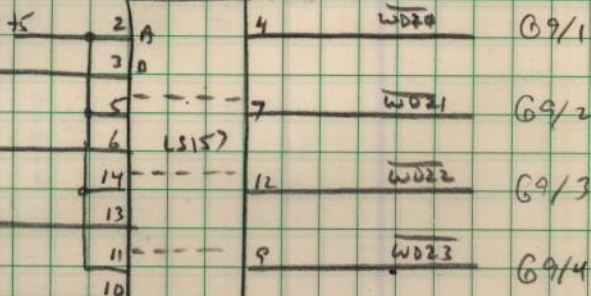 +5 2 A 4 WDZ0 G9/1
3 B
5 7 WDZ1 G9/2
6 LS157
14 12 WDZ2 G9/3
13
11 9 WDZ3 G9/4
10